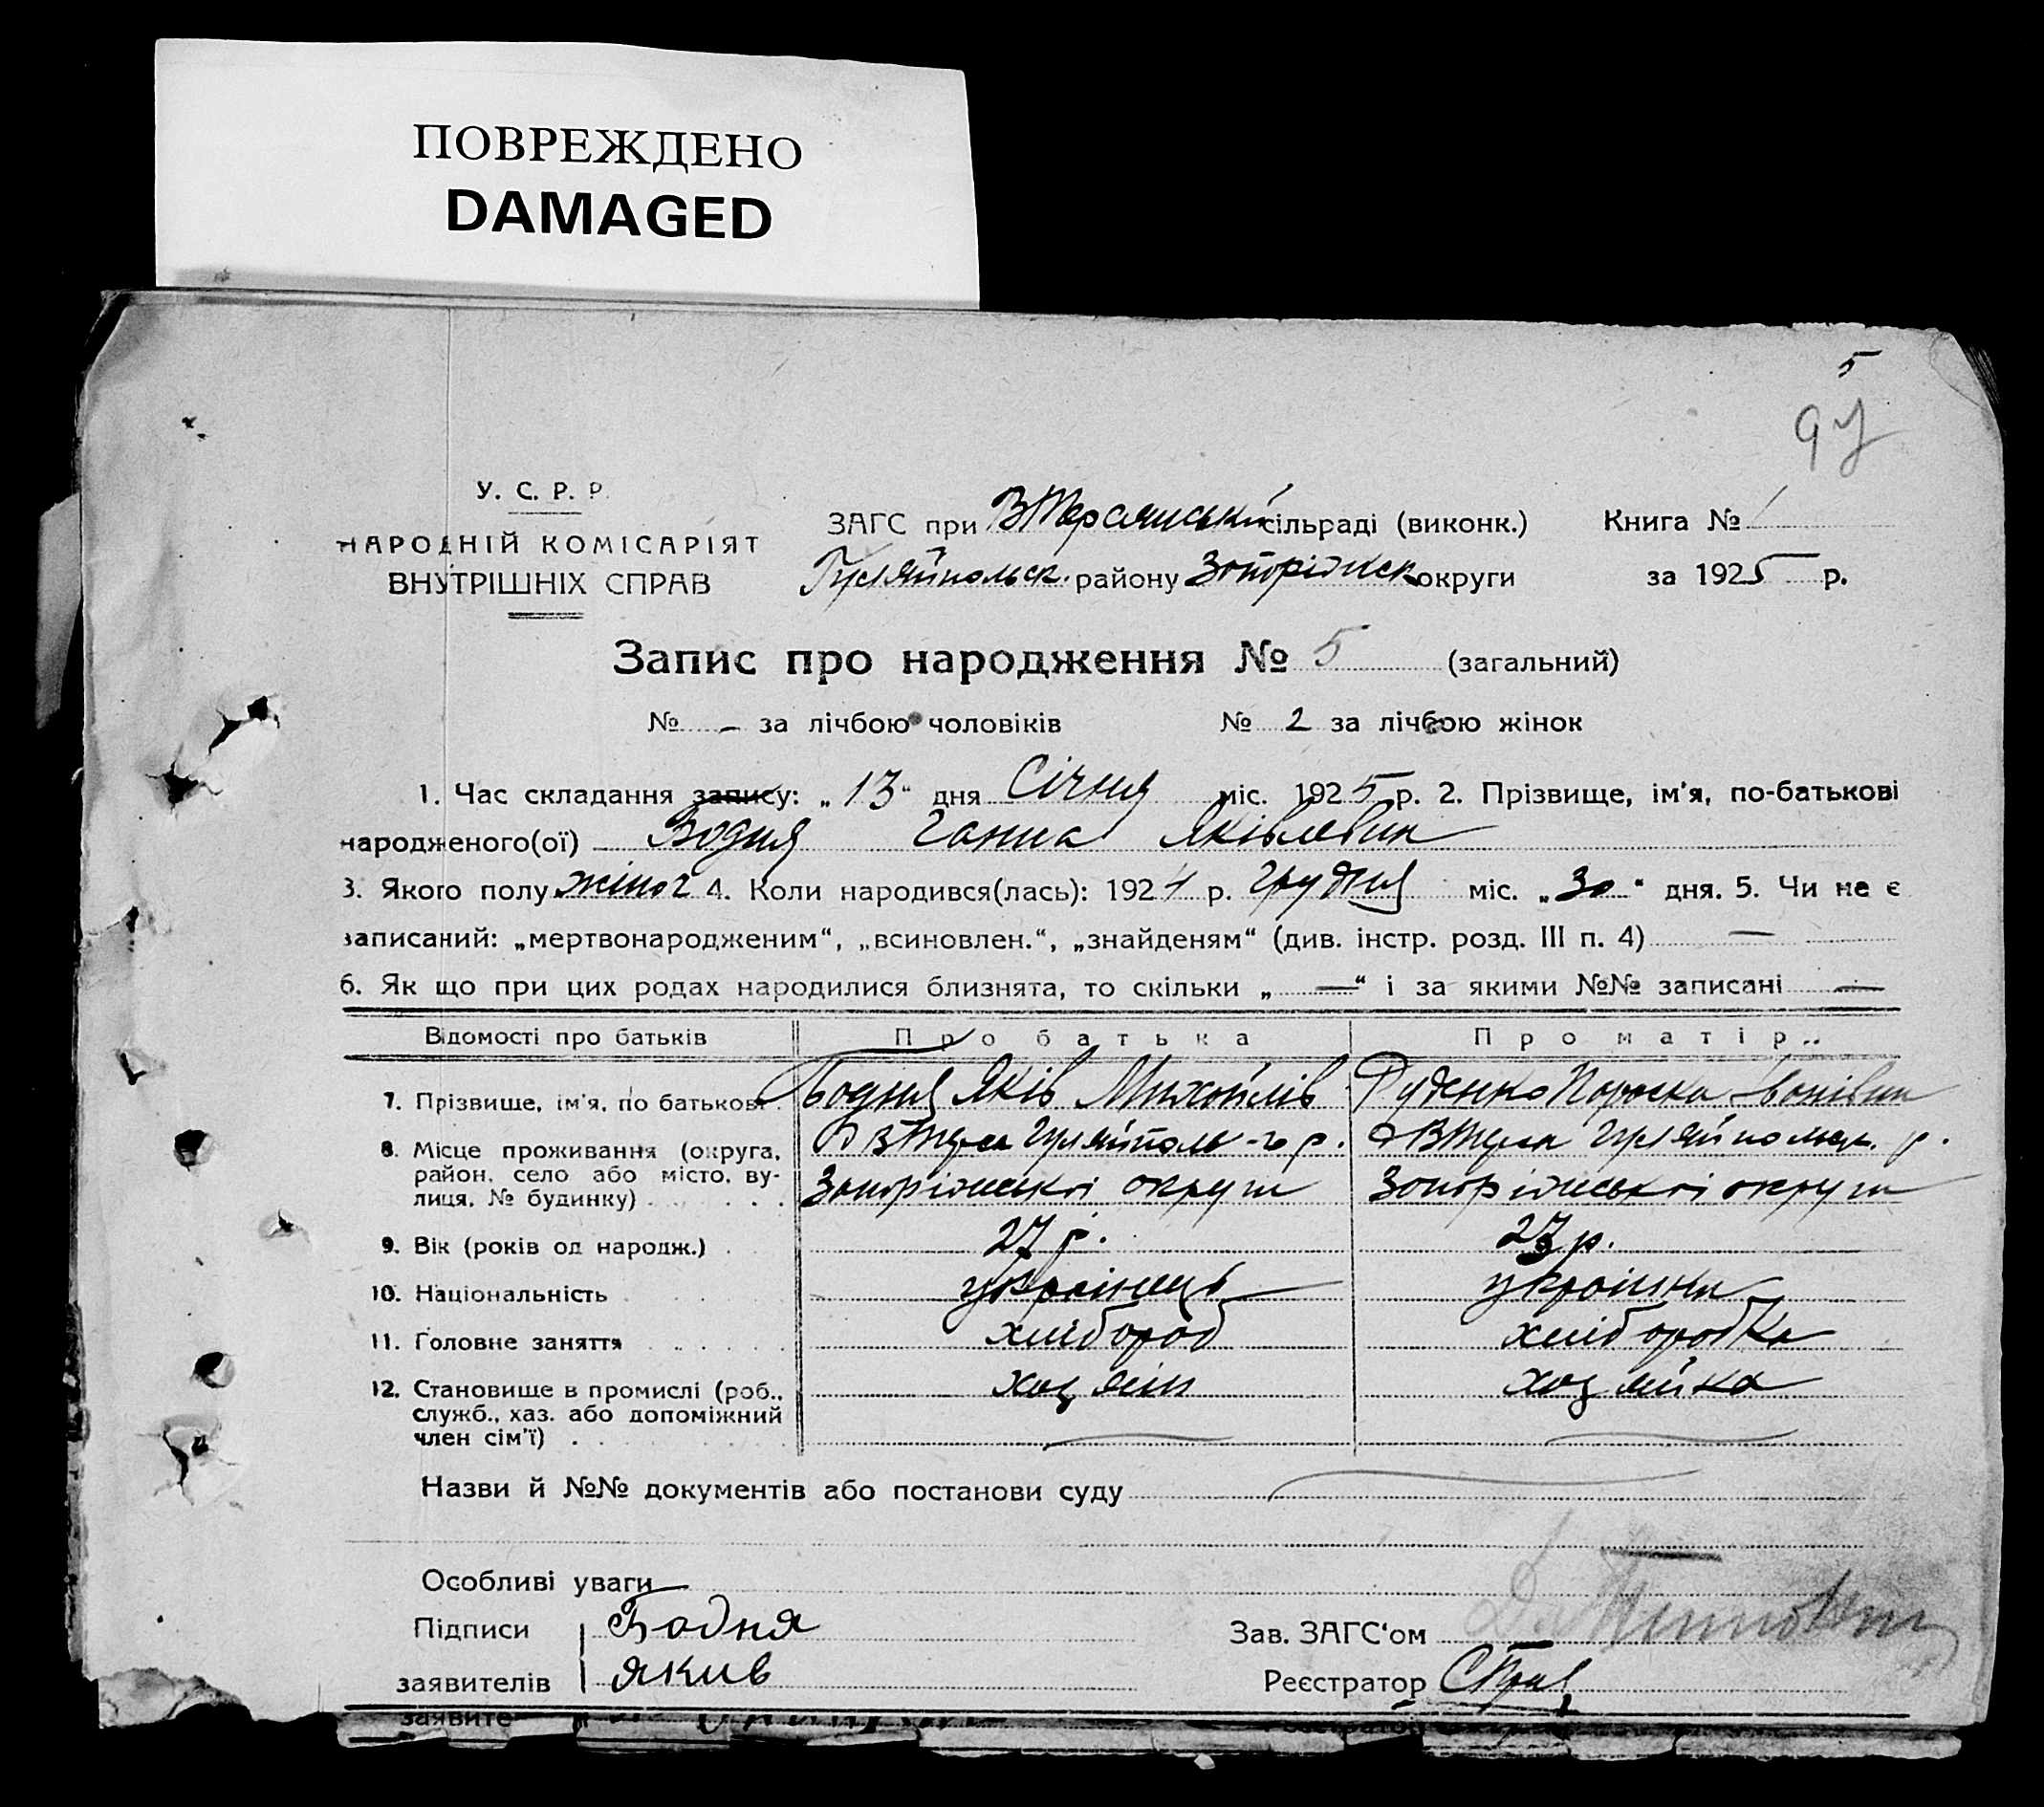 ПОВРЕЖДЕНО
DAMAGED
5
97
У. С. Р. Р.
НАРОДНІЙ КОМІСАРІЯТ
ВНУТРІШНІХ СПРАВ
ЗАГС при ВТерсянській сільраді (виконк.)
Гуляйпольськ. району Запоріжск округи
Книга № 1
за 1925 р.
Запис про народження № 5 (загальний)
№ - за лічбою чоловіків № 2 за лічбою жінок
1. Час складання запису: „13“ дня Січня міс. 1925 р. 2. Прізвище, ім'я, по-батькові
народженого(ої) Бодня Ганна Яківлевна
3. Якого полу жіноч 4. Коли народився(лась): 1924 р. грудня міс. „30“ дня. 5. Чи не є
записаний: „мертвонародженим“, „всиновлен.“, „знайденям“ (див. інстр. розд. III п. 4) —
6. Як що при цих родах народилися близнята, то скільки „—“ і за якими №№ записані —
Відомості про батьків Про батька Про матір..
7. Прізвище, ім'я, по батькові Бодня Яків Михайлів Руденко Параска Іванівна
8. Місце проживання (округа, район, село або місто, вулиця, № будинку)
ВТерса Гуляйполь-го р. ВТерса Гуляйпольск. р.
Запоріжської округи Запоріжської округи
9. Вік (років од народж.) 27 р. 23 р.
10. Національність українець українка
11. Головне заняття хлібороб хліборобка
12. Становище в промислі (роб., служб., хаз. або допоміжний член сім'ї) хазяїн хазяйка
Назви й №№ документів або постанови суду
Особливі уваги
Підписи Бодня
заявителів Якив
Зав. ЗАГС'ом
Реєстратор
заявите